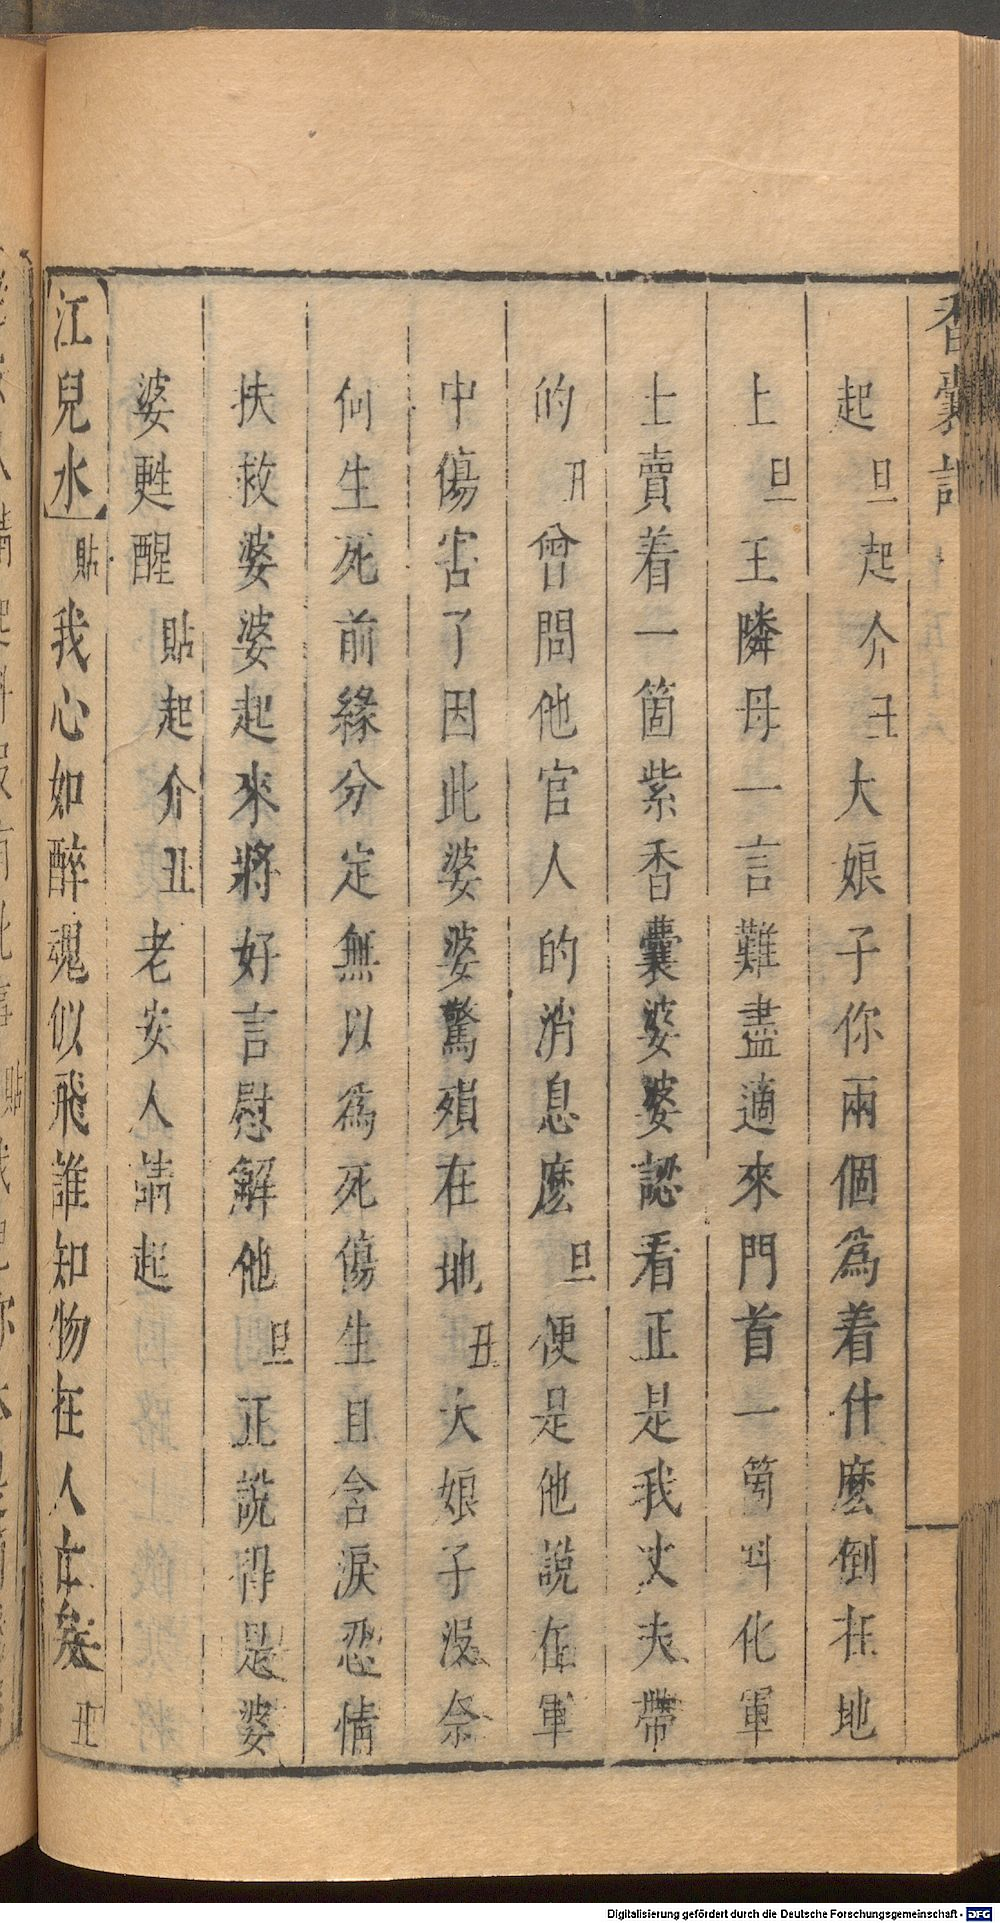 香囊記
起旦起介丑大娘子你兩個爲着什麽倒在地
上旦王隣母一言難盡適來門首一箇叫化軍
士賣着一箇紫香囊婆婆認看正是我丈夫帶
的丑曾問他官人的消息麽旦便是他說在軍
中傷害了因此婆婆驚殞在地丑大娘子沒奈
何生死前緣分定無以爲死傷生且含淚忍情
扶救婆婆起來將好言慰解他旦正說得是婆
婆甦醒貼起介丑老安人請起
【江兒水】貼我心如醉魂似飛誰知物在人亡矣丑
Digitalisierung gefördert durch die Deutsche Forschungsgemeinschaft - DFG